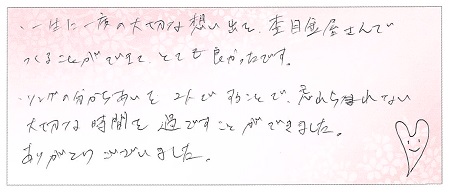 ・一生に一度の大切な想い出を、杢目金屋さんで
つくることができて、とても良かったです。
・リングの分かちあいを2人ですることで、忘れられない
大切な時間を過ごすことができました。
ありがとうございました。